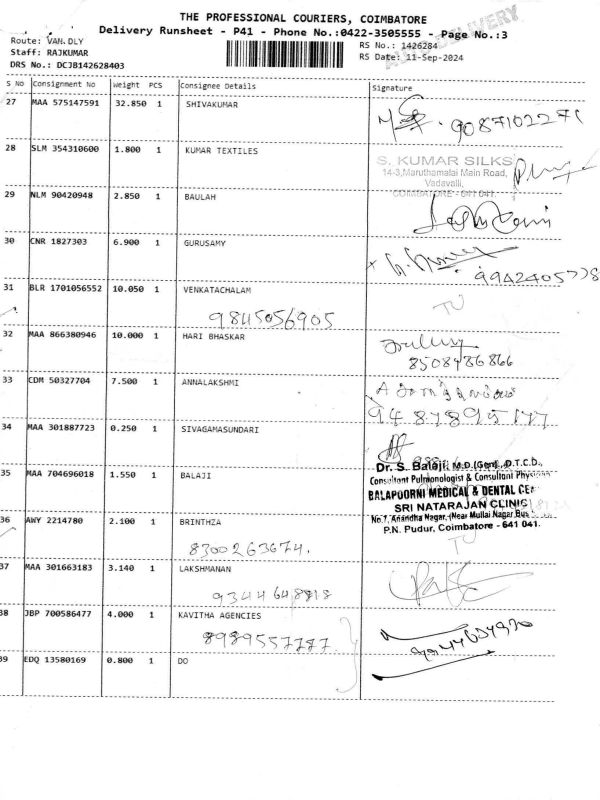 THE PROFESSIONAL COURIERS, COIMBATORE
Delivery Runsheet - P41 - Phone No.:0422-3505555 - Page No.:3
AUTO DELIVERY
Route: VAN.DLY
Staff: RAJKUMAR
DRS No.: DCJB142628403
RS No.: 1426284
RS Date: 11-Sep-2024
S No Consignment No Weight PCS Consignee Details Signature
27 MAA 575147591 32.850 1 SHIVAKUMAR
9087102271
28 SLM 354310600 1.800 1 KUMAR TEXTILES
S. KUMAR SILKS
14-3,Maruthamalai Main Road,
Vadavalli,
COIMBATORE - 641 041.
29 NLM 90420948 2.850 1 BAULAH
30 CNR 1827303 6.900 1 GURUSAMY
9942405778
31 BLR 1701056552 10.050 1 VENKATACHALAM
9845056905
TU
32 MAA 866380946 10.000 1 HARI BHASKAR
8508486866
33 CDM 50327704 7.500 1 ANNALAKSHMI
9487895177
34 MAA 301887723 0.250 1 SIVAGAMASUNDARI
35 MAA 704696018 1.550 1 BALAJI
Dr. S. Balaji, M.D.(Gen)., D.T.C.D.,
Consultant Pulmonologist & Consultant Physician
BALAPOORNI MEDICAL & DENTAL
SRI NATARAJAN CLINIC
No.7, Anandha Nagar, (Near Mullai Nagar Bus
P.N. Pudur, Coimbatore - 641 041.
36 AWY 2214780 2.100 1 BRINTHZA
8300263674.
TU
37 MAA 301663183 3.140 1 LAKSHMANAN
9344648818
38 JBP 700586477 4.000 1 KAVITHA AGENCIES
8989557787
39 EDQ 13580169 0.800 1 DO